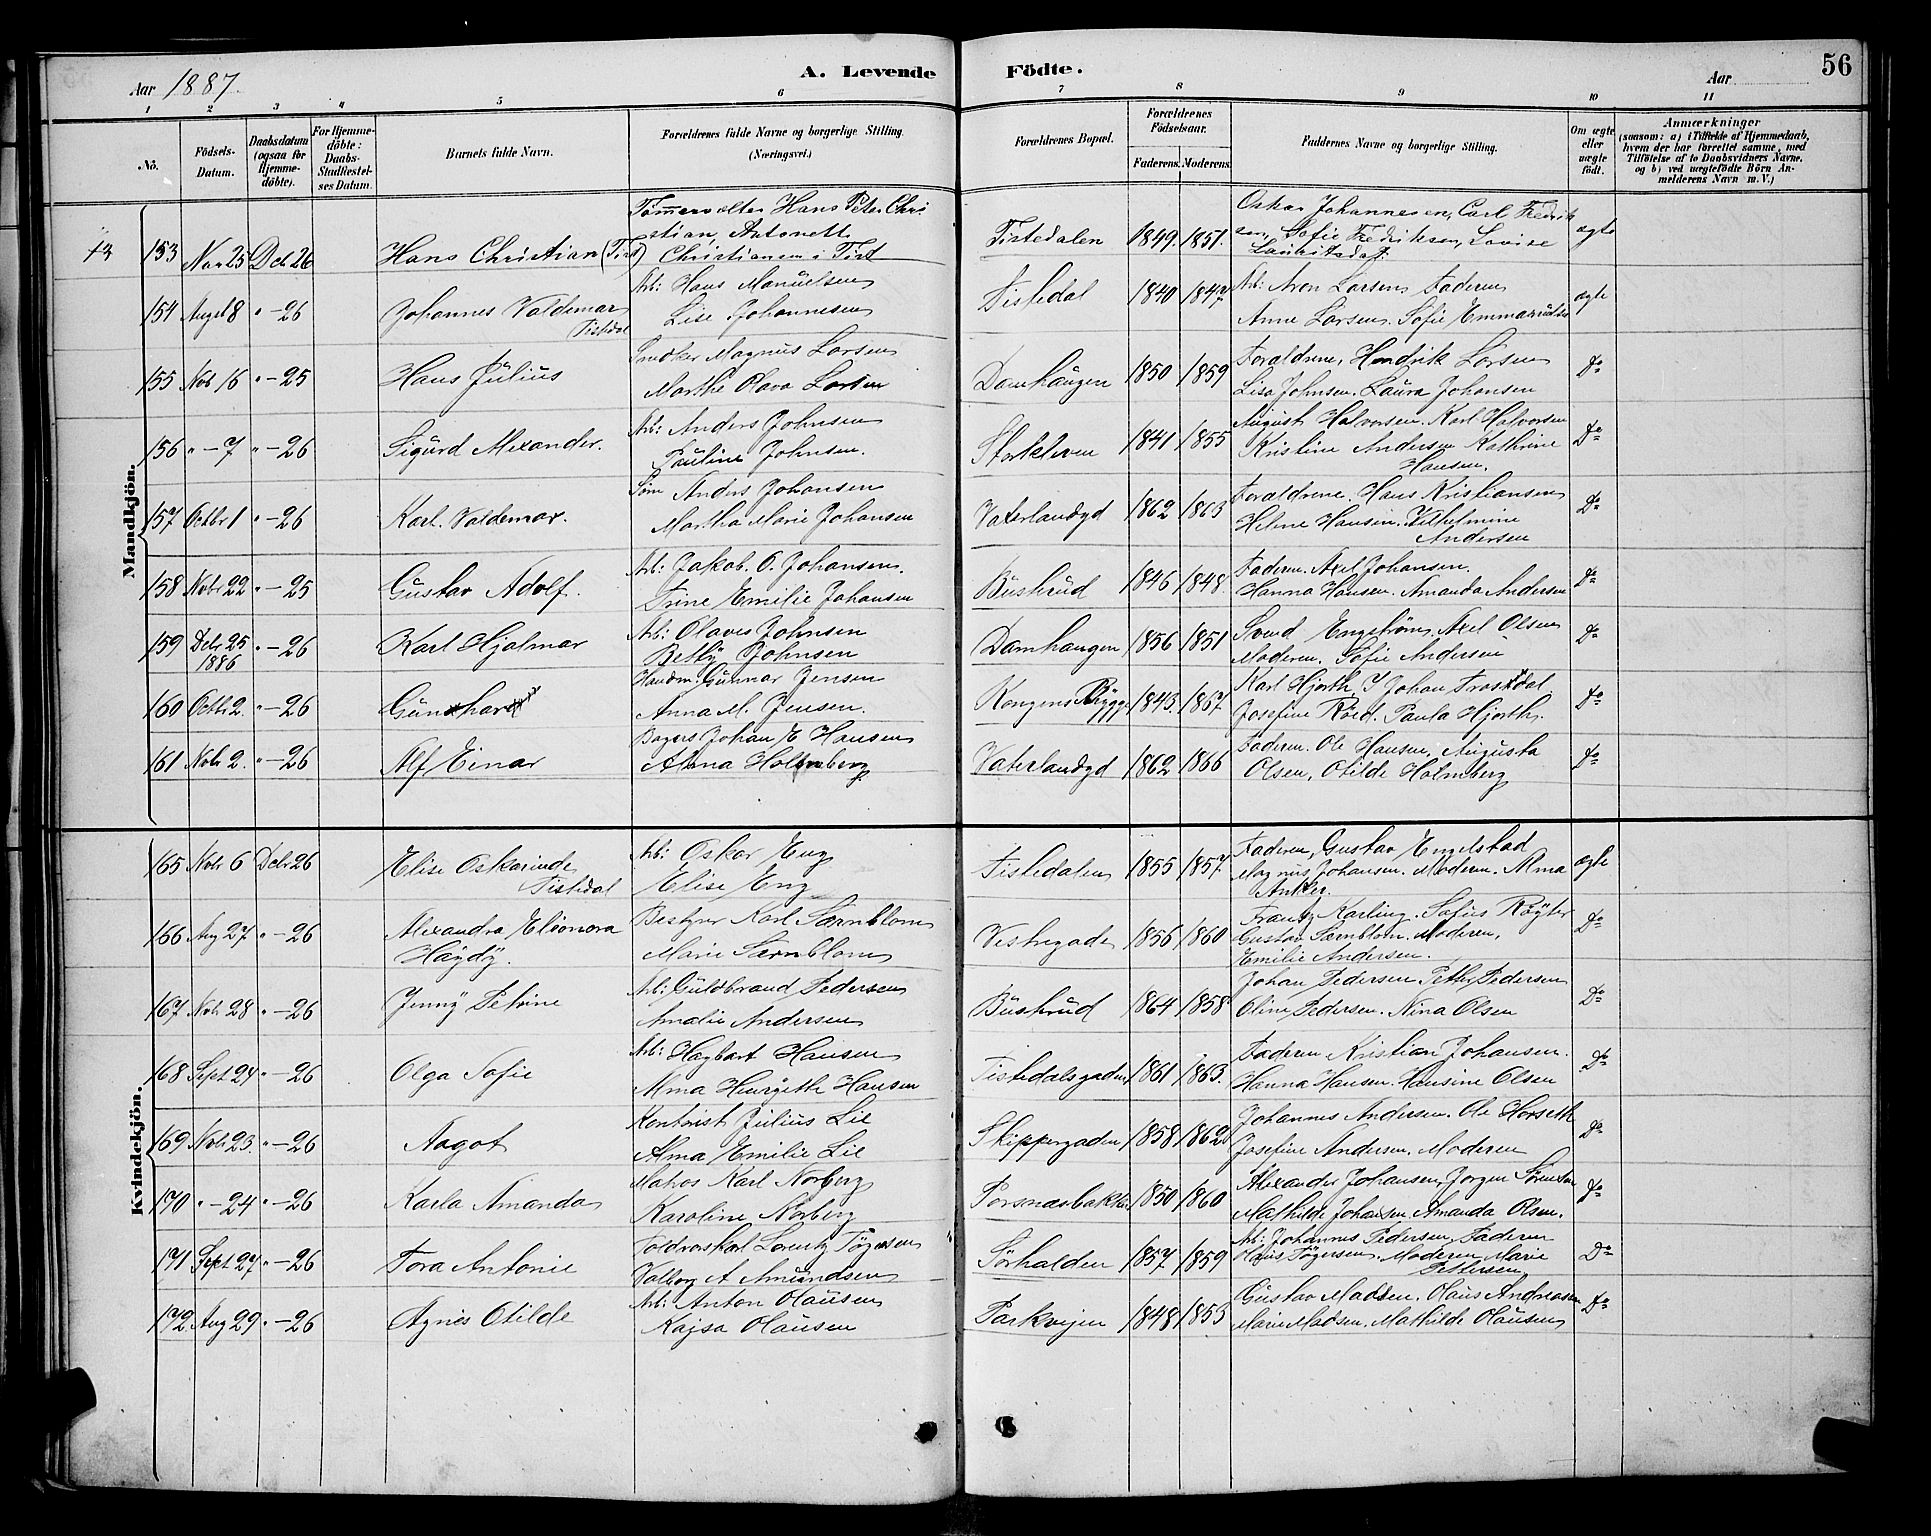 56
Aar 1887. A. Levende Födte. Aar
1 2 3 4 5 6 7 8 9 10 11
No. Födsels-Datum. Daabsdatum (ogsaa for Hjemme-döbte). For Hjemme-döbte: Daabs-Stadfæstel-ses Datum. Barnets fulde Navn. Forældrenes fulde Navne og borgerlige Stilling. (Næringsvei.) Forældrenes Bopæl. Forældrenes Födselsaar. Faderens. Moderens. Faddernes Navne og borgerlige Stilling. Om ægte eller uægte födt. Anmærkninger (saasom: a) i Tilfælde af Hjemmedaab, hvem der har forrettet samme, med Tilföielse af to Daabsvidners Navne, og b) ved uægtefödte Börn An-melderens Navn m. V.)
Mandkjön.
153 Nov 25 Dcb 26 Hans Christian (Tist) Tömmervalter Hans Peter Chri-
stian, Antonette
Christiansen i Tist Tistedalen 1849. 1851. Oskar Johannesen, Carl Fredrik
sen, Sofie Fredriksen, Lovise
Lauritsdat. ægte
154 Augst 8 " - 26 Johannes Valdemar
Tistedal Arb: Hans Manuelsen
Lise Johannesen Tistedal 1840 1847 Arb: Aron Larsen, Faderen
Anne Larsen. Sofie Emmanuelsen ægte
155 Nob 16 " - 25 Hans Julius Snedker Magnus Larsen
Marthe Olava Larsen Damhaugen 1850 1859 Forældrene, Hendrik Larsen
Lisa Johnsen. Laura Johansen Do
156 " - 7 " - 26 Sigurd Alexander. Arb: Anders Johnsen
Pauline Johnsen. Storkleven 1841 1855 August Halvorsen. Karl Halvorsen
Kristine Andersen Kathrine
Hansen. Do
157 Octbr 1 " - 26 Karl. Valdemar. Söm Anders Johansen
Martha Marie Johansen Vaterlandgd 1862 1863 Forældrene. Hans Kristiansen
Helene Hansen. Vilhelmine
Andersen Do
158 Nobr 22 " - 25 Gustav Adolf. Arb: Jakob. O. Johansen.
Trine Emilie Johansen Buskrud 1846 1848. Faderen. Axel Johansen.
Hanna Hansen. Amanda Andersen Do
159 Dcbr 25
1886 " - 26 Karl Hjalmar Arb: Olaves Johnsen
Betty Johnsen Damhaugen 1856 1851 Svend Engström. Axel Olsen
Moderen. Sofie Andersen Do
160 Octb 2. " - 26 Gunhard Handm. Gunnar Jensen
Anna M. Jensen. Kongens Brygge 1843. 1867 Karl Hjorth. J Johan Frostdal
Josefine Röed. Paula Hjorth. Do
161 Nobr 2. " - 26 Alf Einar Bagers Johan E Hansen
Alma Holmberg Vaterlandgd 1862 1866 Faderen. Ole Hansen, Augusta
Olsen, Otilde Holmberg Do
Kvindekjön.
165 Nobr 6 Dcbr 26 Elise Oskarinde
Tistedal Arb: Oskar Eng
Elise Eng Tistedalen 1855 1857 Faderen, Gustav Engelstad
Magnus Johansen. Moderen. Alma
Anker. ægte
166 Aug 27 " - 26 Alexandra Elionora
Haydy. Bestyrer Karl Særnblom
Marie Særnblom Vestregade 1856 1860 Frantz Karling. Sofus Röyter
Gustav Særnblom. Moderen,
Emilie Andersen. Do
167 Nobr 28 " - 26 Jenny Petrine Arb: Guldbrand Pedersen
Amalie Andersen Buskrud 1864 1858 Johan Pedersen Petter Pedersen
Oline Pedersen. Nina Olsen Do
168 Sept 24 " - 26 Olga Sofie Arb: Hagbart Hansen
Alma Henriette Hansen Tistedalsgaden 1861 1863. Faderen Kristian Johansen.
Hanna Hansen. Hansine Olsen Do
169 Nobr 23. " - 26 Aagot Kontorist Julius Lie
Alma Emilie Lie Skippergaden 1858 1862 Johannes Andersen. Ole Horseth
Josefine Andersen. Moderen Do
170 " - 24 " - 26 Karla Amanda Matros Karl Norberg
Karoline Norberg Porsnæsbakken 1850 1860 Alexander Johansen, Jorgen Sörensen
Mathilde Johansen. Amanda Olsen. Do
171 Sept 27 " - 26 Tora Antonie Toldrorskarl Lorentz Tögersen
Valborg A Amundsen Sörhalden 1857 1859 Arb: Johannes Pedersen, Faderen
Olaus Tögersen. Moderen Marie
Pettersen Do
172 Aug 29 " - 26 Agnes Otilde Arb: Anton Olausen
Kajsa Olausen Parkvejen 1848 1853 Gustav Madsen. Olaus Andreasen
Marie Madsen. Mathilde Olausen Do